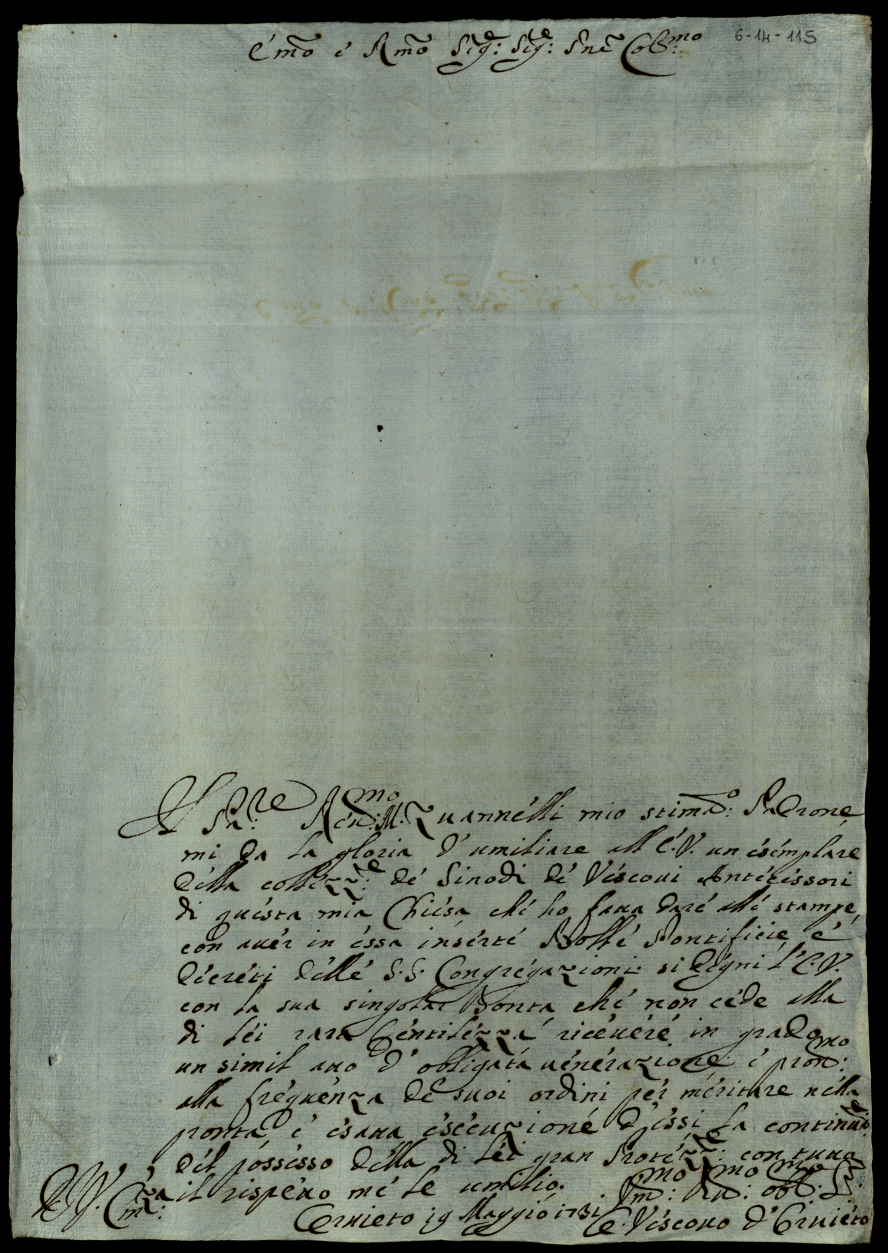 Emo e Rmo Sig:e Sig:e Pne Col:mo
6-14-115
Il Pa:dre Rev:mo M: Zuannelli mio stimao: Padrone
mi da la gloria d'umiliare all'E.V. un esemplare
della collezz:e de Sinodi de Vescovi Antecessori
di questa mia Chiesa che ho fatta dare alle stampe,
con aver in essa inserte Bolle Pontificie, e
decreti delle S:S: Congregazioni: si degni l'E.V.
con la sua singolar Bontà che non cede alla
di Lei rara Gentilezza riceuere in grado
un simil atto d'obligata uenerazione: e pron:mo
alla frequenza de suoi ordini per meritare nella
pronta, e esatta esecuzione d'essi la continu:e
del possesso della di Lei gran Protezz:e: con tutto
il rispetto me le umilio.
D V. Em:za
Cervieto 19 Maggio 1731
Um:mo Du:mo Obb:mo S:
Il Vescovo d'Orvieto